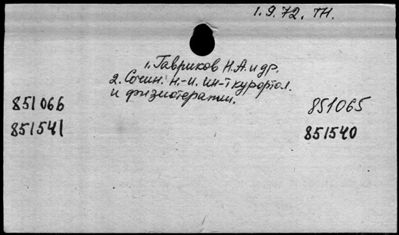 1.9.72. ТН.
1. Гавриков Н.А. и др.
2. Сочин. н.-и. ин-т курортол.
и физиотерапии.
851066
851065
851541
851540